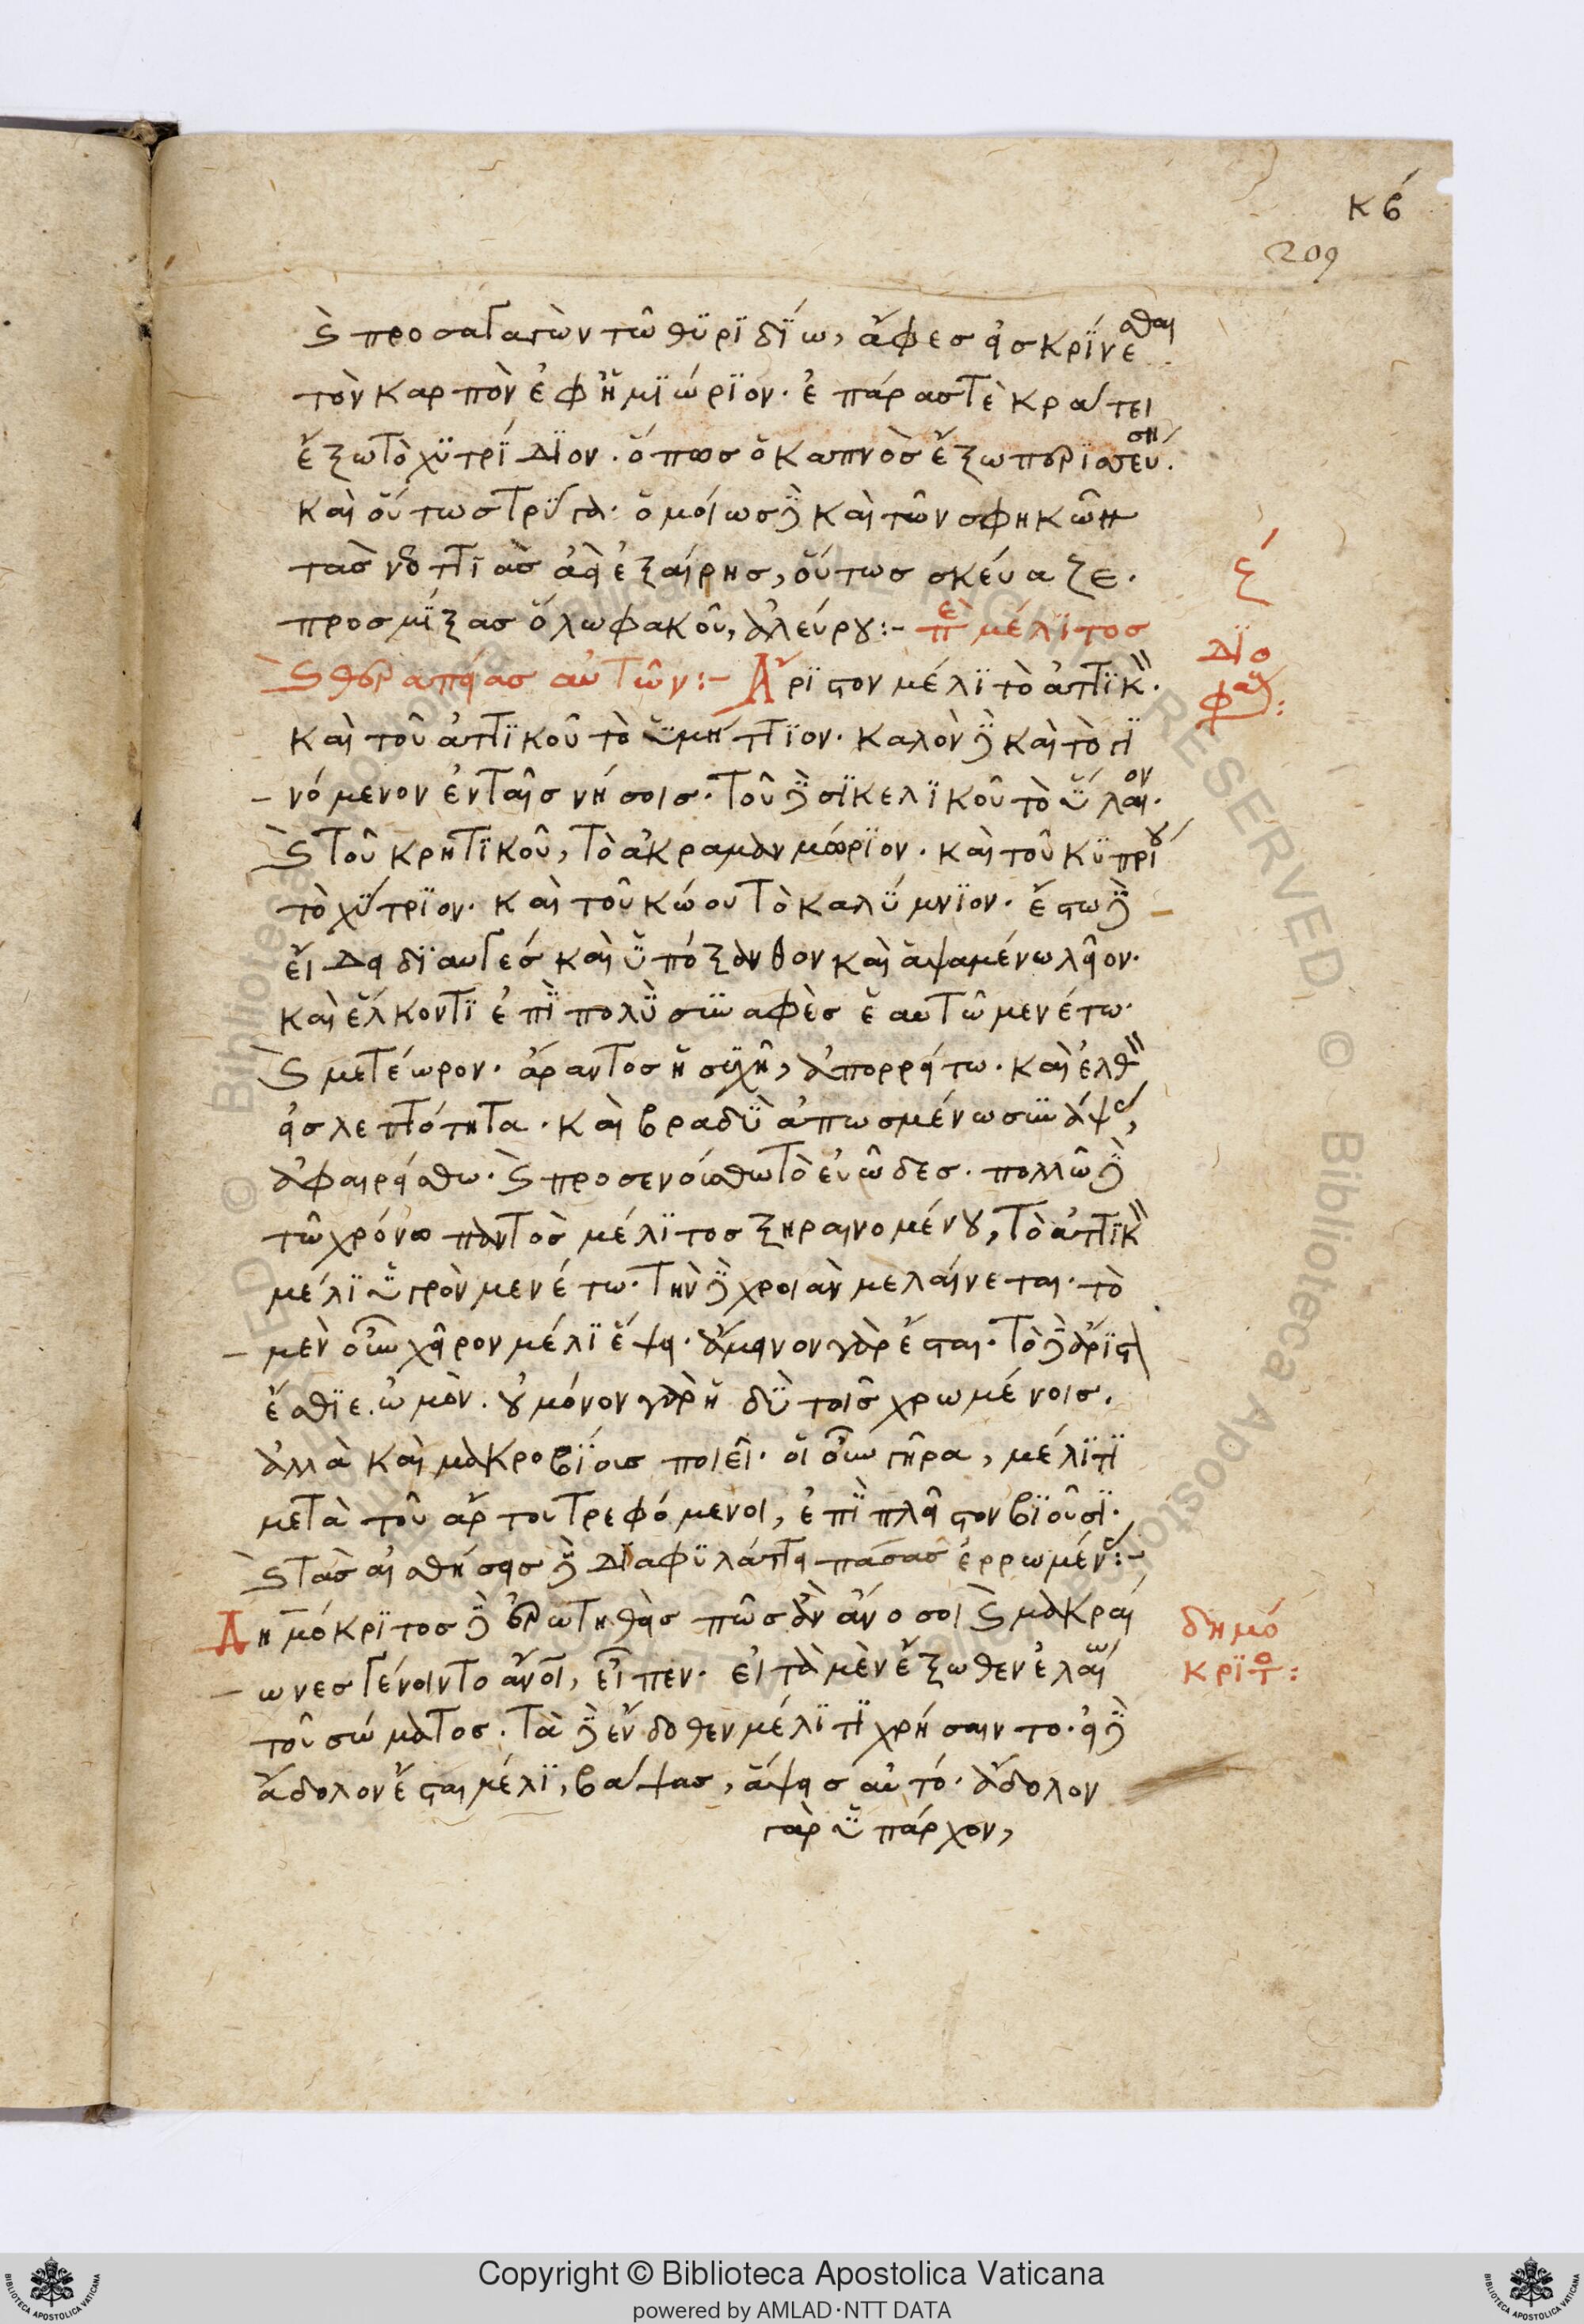 κβ́
209
καὶ προσαγαγὼν τῶ θϋρϊδίω, ἄφες εἰσκρίνεσθαι
τὸν καρπὸν ἐφ ἡμϊώρϊον. ἐπάρας τὲ κράτει
ἔξω τὸ χϋτρίδϊον. ὅπως ὁ καπνὸς ἔξω πορϊσσῃ
καὶ οὕτως τρύγα. ὁμοίως δὲ καὶ τῶν σφηκῶν
τὰς νοττϊὰς
ἐξαίρης, οὕτως σκεύαζε.
προσμίξας ὅλω φακοῦ, ἀλεύρου:- περὶ μέλϊτος
καὶ θεραπείας αὐτῶν:- Ἄρϊστον μέλϊ τὸ ἀττϊκὸν.
ζ́
Διο
φάν:
καὶ τοῦ ἀττϊκοῦ τὸ ὑμήττϊον. καλὸν δὲ καὶ τὸ γϊ
νόμενον ἐν ταῖς νήσοις. τοῦ δὲ σϊκελϊκοῦ τὸ ὑλαῖον.
καὶ τοῦ κρητϊκοῦ, τὸ ἀκραμαμώρϊον. καὶ τοῦ κϋπρίου
τὸ χύτρϊον. καὶ τοῦ κώου τὸ καλύμνϊον. ἔστω δὲ
εἴδει δϊαυγές καὶ ὑπόξανθον καὶ ἁψαμένω λεῖον.
καὶ ἕλκοντϊ ἐπὶ πολὺ συναφὲς ἑαυτῶ μενέτω.
καὶ μετέωρον. ἄραντος
ἀπορρείτω. καὶ ἐλθὴ
εἰς λεπτότητα. καὶ βραδὺ ἀπωσμένως
ἀφαιρείσθω. καὶ
τὸ εὐῶδες. πολλῶ δὲ
τῶ χρόνω παντὸς μέλϊτος ξηραινομένου, τὸ ἀττϊκὸν
μέλϊ ὑγρὸν μενέτω. τὴν δὲ χροιὰν μελαίνεται. τὸ
μὲν οὖν χεῖρον μέλϊ ἕψει. ἄμεινον γὰρ ἔσται. τὸ δὲ ἄρϊστον
ἔσθϊε ὠμὸν. οὐ μόνον γὰρ ἡδὺ τοῖς χρωμένοις.
ἀλλὰ καὶ μακροβίους ποιεῖ. οἱ οὖν γῆρα, μέλϊτϊ
μετὰ τοῦ ἄρτου τρεφόμενοι, ἐπὶ πλεῖστον βϊοῦσϊ.
καὶ τὰς αἰσθήσεις δὲ δϊαφϋλάττει πάσας ἐρρωμένας:-
Δημόκρϊτος δὲ ἐρωτηθεὶς πῶς ἂν ἄνοσοι καὶ μακραί
ωνες γένοιντο ἄνοι, εἶπεν. εἰ τὰ μὲν ἔξωθεν ἐλαίω
δημό
κρϊτος:
τοῦ σώματος. τὰ δὲ ἔνδοθεν μέλϊτϊ χρήσαιντο. εἰ δὲ
ἄδολον ἔσται μέλϊ, βάψας, ἅψεις αὐτό. ἄδολον
γὰρ ὑπάρχον,
Copyright © Biblioteca Apostolica Vaticana
powered by AMLAD·NTT DATA